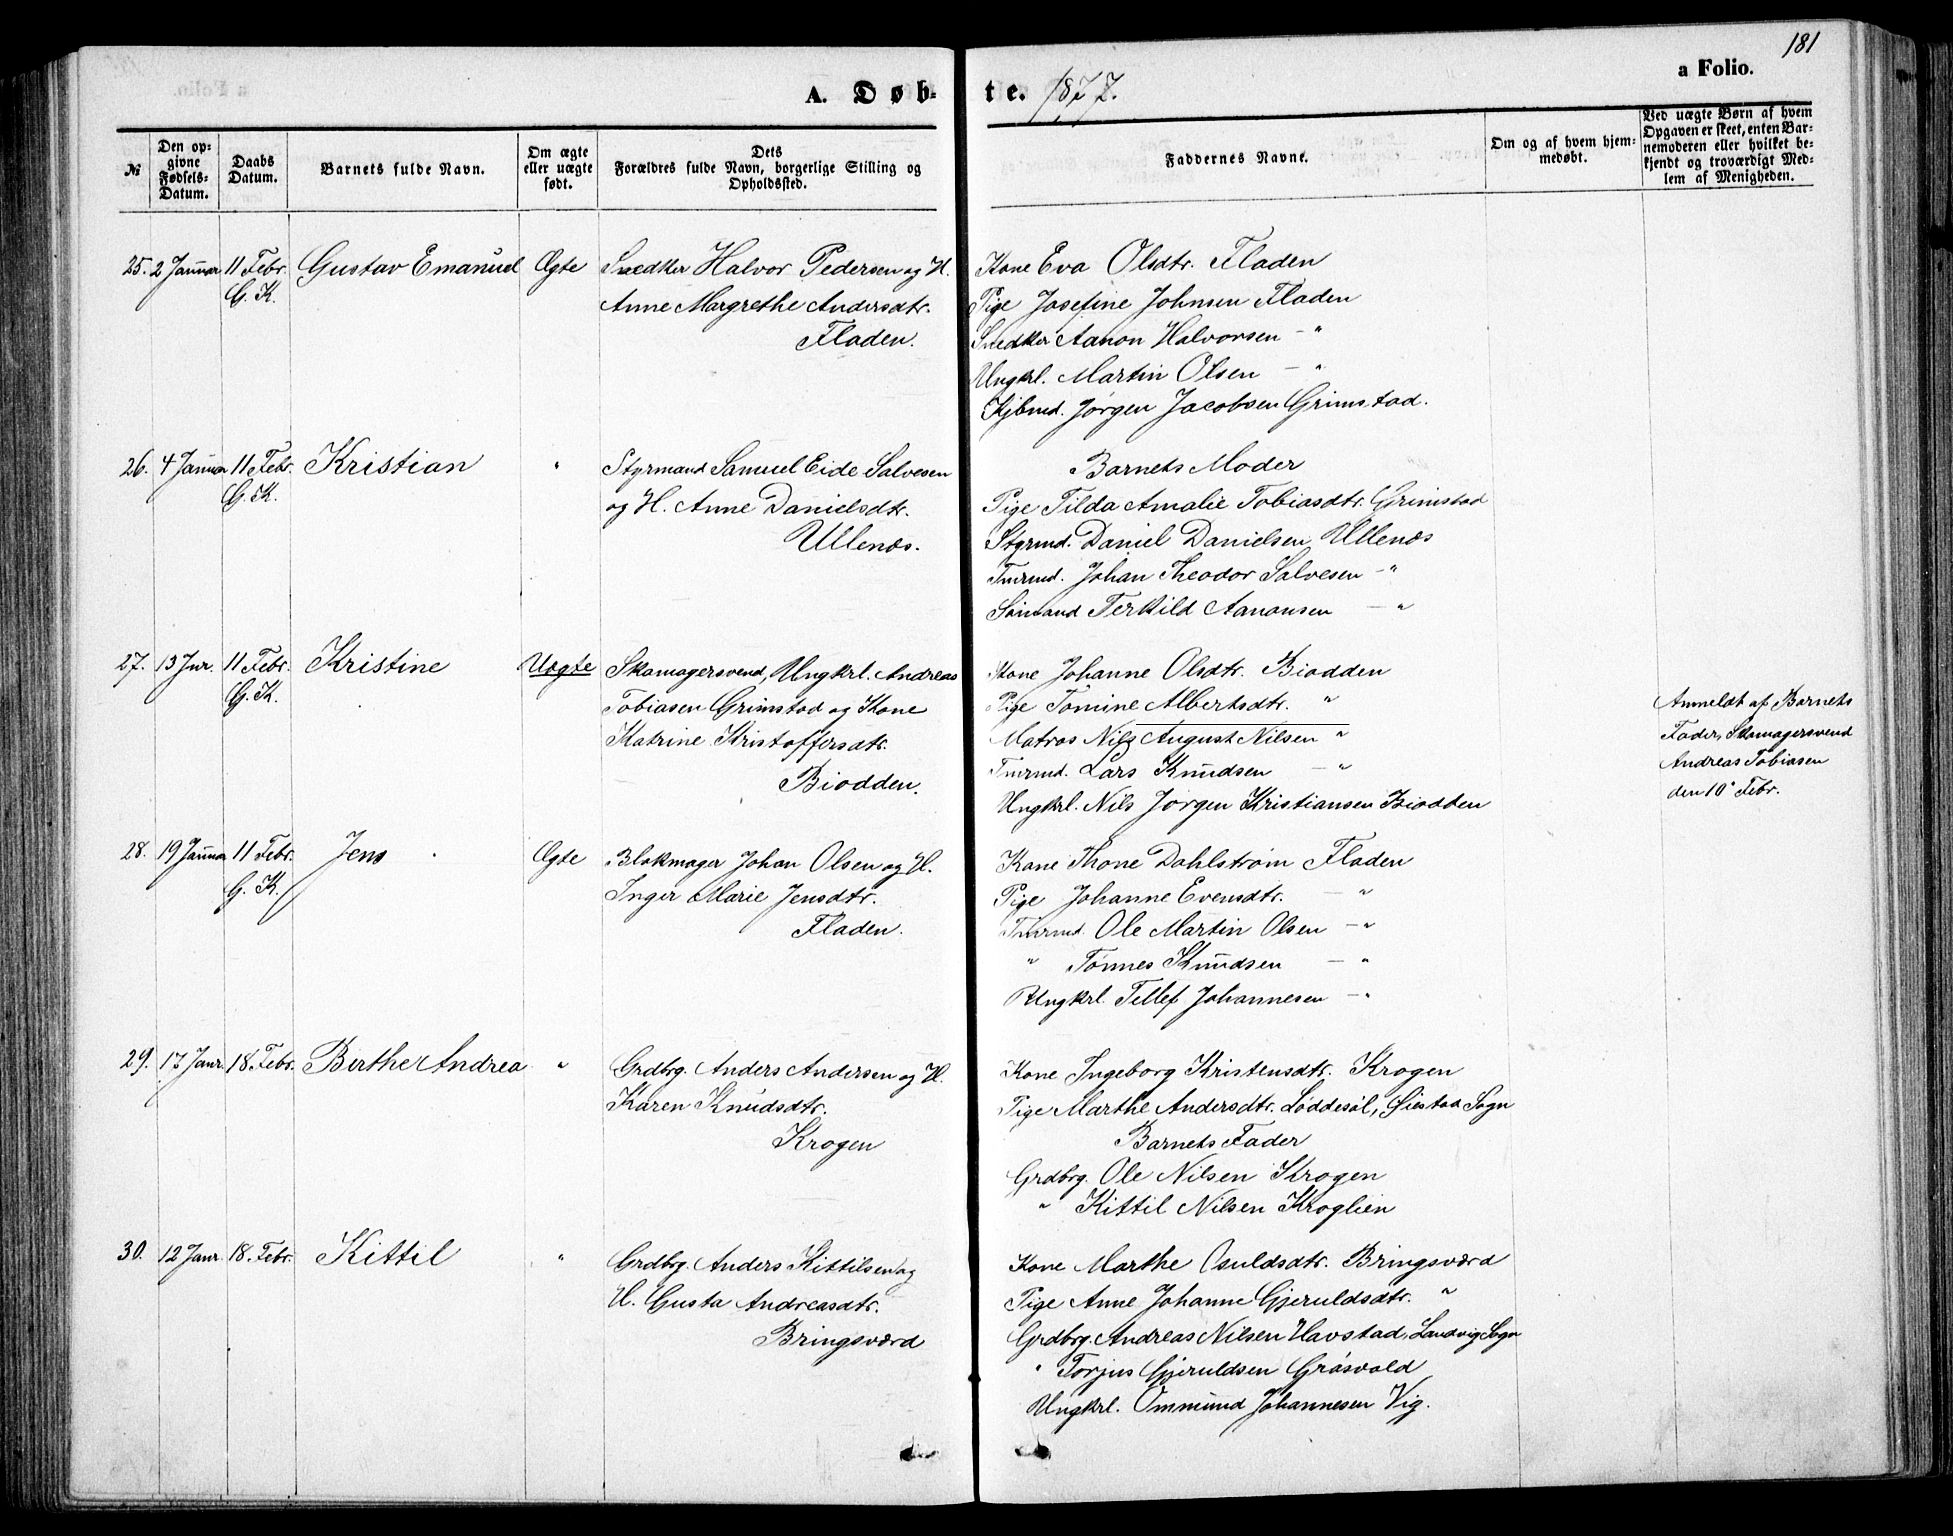 181
a Folio.
A. Døb-
te. 1877.
№
Den op-
givne
Fødsels-
Datum.
Daabs
Datum.
Barnets fulde Navn.
Om ægte
eller uægte
født.
Dets
Forældres fulde Navn, borgerlige Stilling og
Opholdssted.
Faddernes Navne.
Om og af hvem hjem-
medøbt.
Ved uægte Børn af hvem
Opgaven er skeet, enten Bar-
nemoderen eller hvilket be-
kjendt og troværdigt Med-
lem af Menigheden.
25. 2 Januar 11 Febr. Gustav Emanuel Ægte Snedker Halvor Pedersen og H.
G. K. Anne Margrethe Andersdtr.
Fladen.
Kone Eva Olsdtr. Fladen
Pige Josefine Johnsen Fladen
Snedker Aanon Halvorsen — "
Ungkrl. Martin Olsen — "
Kjbmd. Jørgen Jacobsen Grimstad.
26. 4 Januar 11 Febr. Kristian " Styrmand Samuel Eide Salvesen
G. K. og H. Anne Danielsdtr.
Ullenæs.
Barnets Moder
Pige Tilda Amalie Tobiasdtr. Grimstad
Styrmd. Daniel Danielsen Ullenæs
Tmrmd. Johan Theodor Salvesen — "
Sømand Terkild Aanonsen — "
27. 13 Jnr. 11 Febr. Kristine Uægte Skomagersvend, Ungkrl. Andreas
G. K. Tobiasen Grimstad og Kone
Katrine Kristoffersdtr.
Biodden.
Kone Johanne Olsdtr. Biodden
Pige Tomine Albertsdtr. "
Matros Nils August Nilsen "
Tmrmd. Lars Knudsen — "
Ungkrl. Nils Jørgen Kristiansen Biodden
Anmeldt af Barnets
Fader, Skomagersvend
Andreas Tobiasen
den 10 Febr.
28. 19 Januar 11 Febr. Jens Ægte Blokmager Johan Olsen og H.
G. K. Inger Marie Jensdtr.
Fladen.
Kone Thone Dahlstrøm Fladen
Pige Johanne Evensdtr. — "
Tmrmd. Ole Martin Olsen — "
" Tønnes Knudsen — "
Ungkrl. Tellef Johannesen — "
29. 17 Janr. 18 Febr. Birthe Andrea " Grdbrg. Anders Andersen og H.
Karen Knudsdtr.
Krogen
Kone Ingeborg Kristensdtr. Krogen
Pige Marthe Andersdtr. Løddesøl, Øiestad Sogn
Barnets Fader
Grdbrg. Ole Nilsen Krogen
" Kittil Nilsen Kroglien
30. 12 Janr. 18. Febr. Kittil " Grdbrg. Anders Kittilsen og
H. Gusta Andreasdtr.
Bringsværd
Kone Marthe Osuldsdtr. Bringsværd
Pige Anne Johanne Gjeruldsdtr. "
Grdbrg. Andreas Nilsen Havstad, Landvig Sogn
" Torjus Gjeruldsen Gråsvold
Ungkrl. Ommund Johannesen Vig.